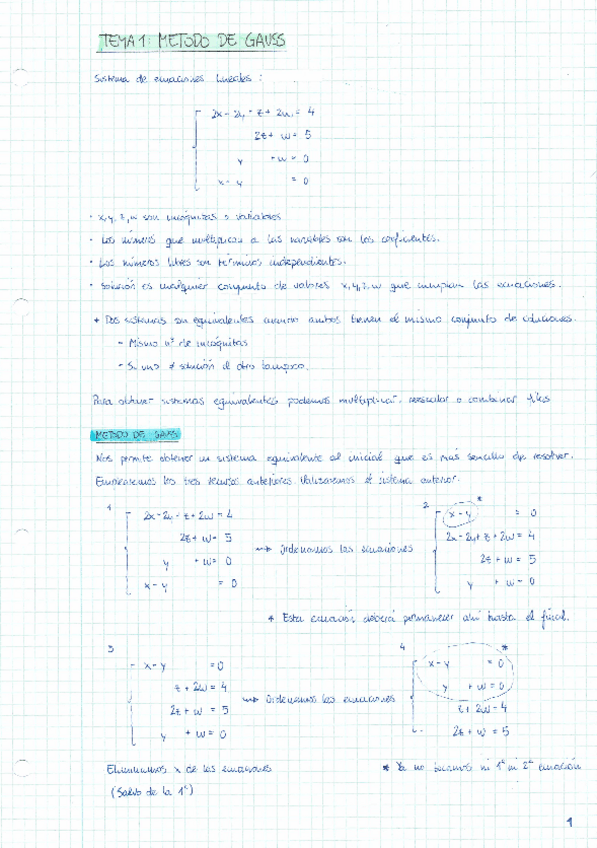 TEMA 1: METODO DE GAUSS
Sistema de ecuaciones lineales :
2x - 2y - z + 2w = 4
2z + w = 5
y + w = 0
x - y = 0
· x, y, z, w son incógnitas o variables
· Los números que multiplican a las variables son los coeficientes.
· Los números libres son términos independientes.
· Solución es cualquier conjunto de valores x, y, z, w que cumplan las ecuaciones.
* Dos sistemas son equivalentes cuando ambos tienen el mismo conjunto de soluciones.
- Mismo nº de incógnitas
- Si uno ≠ solución el otro tampoco.
Para obtener sistemas equivalentes podemos multiplicar, o combinar filas
METODO DE GAUSS
Nos permite obtener un sistema equivalente al inicial que es más sencillo de resolver.
Emplearemos los tres recursos anteriores. Utilizaremos el sistema anterior.
1
2x - 2y - z + 2w = 4
2z + w = 5
y + w = 0
x - y = 0
→ Ordenamos las ecuaciones
2
*
x - y = 0
2x - 2y + z + 2w = 4
2z + w = 5
y + w = 0
* Esta ecuación deberá permanecer ahí hasta el final.
3
x - y = 0
z + 2w = 4
2z + w = 5
y + w = 0
→ Ordenamos las ecuaciones
4
*
x - y = 0
y + w = 0
z + 2w = 4
2z + w = 5
Eliminamos x de las ecuaciones
(Salvo de la 1ª)
* Ya no tocamos ni 1ª ni 2ª ecuación
1